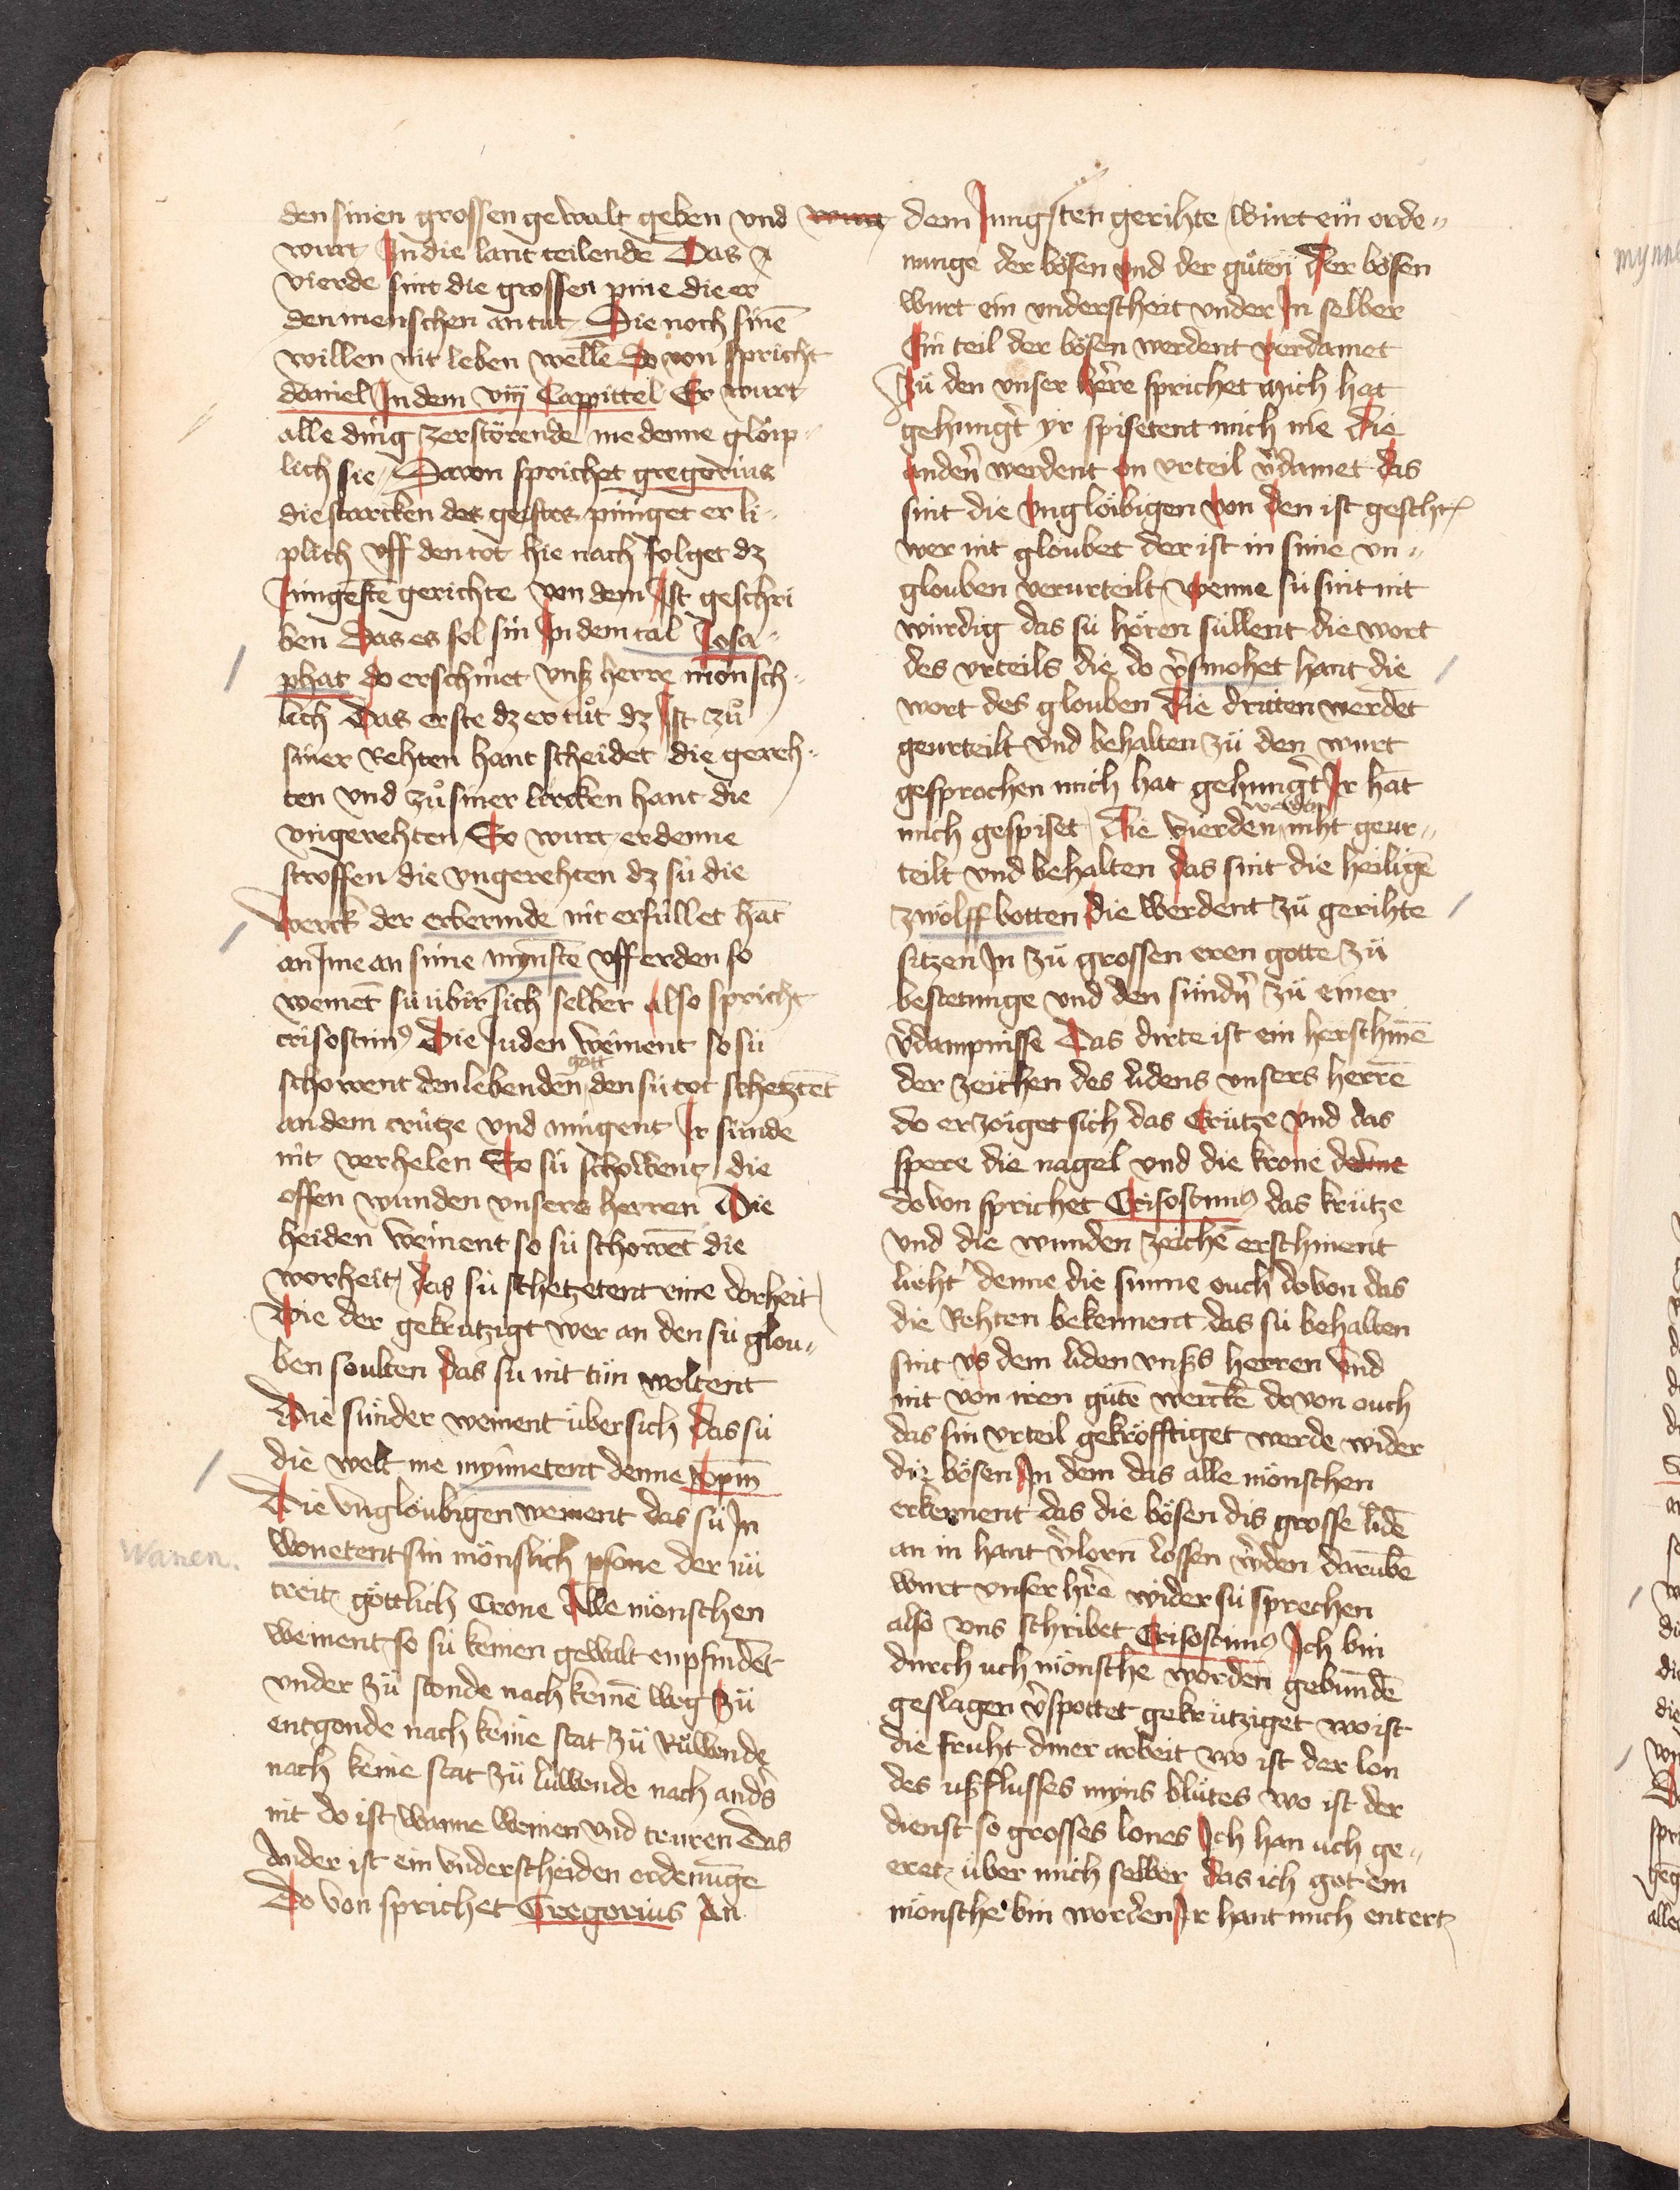 den sinen grossen gewalt geben vnd wurt
wurt In die lant teilende Das
vierde sint die grossen pine die er
den menschen an tut Die noch sinē
willen nit leben welle Do von spricht
daniel In dem viij Cappittel Er wurt
alle ding zerstörende me denne glöip-
lich sie Davon sprichet gregorius
die starcken des geistes piniget er li-
plich vff den tot hie nach folget dz
Jungestē gerichte von dem Ist geschri
ben Das es sol sin In dem tal Josa-
phat do erschinet vnß herre mönsch-
lich Das erste dz er tůt dz Ist zů
siner Rehten hant scheidet die gereh-
ten vnd zů siner lincken hant die
vngerehten So wurt er denne
stroffen die vngerehten dz sú die
werck der erbermde nit erfúllet hāt
an Ime an sime mynstē vff erden so
weinet sú úbir sich selber also spricht
crisostimꝰ Die Juden weinent so sú
schowent den lebenden gott den sú tot schetztēt
an dem crútze vnd mügent Ir súnde
nit verhelen So sú schowent die
offen wunden vnsers herren Die
heiden weinent so sú schowēt die
worheit das sú schetzetent eine dorheit
Die der gekrutzigt wer an den sú glou-
ben soulten das sú nit tün woltent
Die súnder weinent úber sich das sú
die welt me mynnetent denne xp̄m
Die vnglöubigen weinent das sú In
Wanen.
wonetent sin mönslich psone der nü
treit göttlich Crone Alle mönschen
weinent so sú keinen gewalt enpfindēt
vnder zü stonde nach keinē weg zü
entgonde nach keine stat zü Rüwende
nach keine stat zü lüwende nach anðs
nit do ist wanne weinen vnd truren Das
Ander ist ein vnderscheiden ordenūge
Do von sprichet Gregorius An
dem Jungsten gerihte wurt ein orde-
nunge der bösen vnd der gůten Der bösen
wurt ein vnderscheit vnder In selber
Ein teil der bösen werdent verdamet
Zü den vnser here sprichet mich hat
gehungt̉ yr spisetent mich nie Die
anden̉ werdent on vrteil v̉damet das
sint die vnglöibigen von den ist geschr̄
wer nit gloubet der ist in sime vn-
glouben verurteilt Wenne sú sint nit
wúrdig das sú hören súllent die wort
des vrteils die do v̉smohet hant die
wort des glouben Die dritten werdēt
geurteilt vnd behalten zü den wurt
gesprochen mich hat gehungt̉ Ir hāt
mich gespiset Die vierden werden niht geur-
teilt vnd behalten das sint die heiligē
zwölff botten Die werdent zü gerihte
sitzen In zü grossen eren gotte zü
bestetunge vnd den súndn̉ zü einer
v̉dampnisse Das dirte ist ein herschinē
der zeichen des lidens vnsers herrē
do erzöiget sich das Crütze vnd das
spere die nagel vnd die krone denne
do von sprichet Crisostimꝰ das krütze
vnd die wunden zeichē erschinent
lieht̉ denne die sunne ouch do von das
die Rehten bekennent das sú behalten
sint vs dem liden vnßs herren vnd
nit von iren gütē werckē do von ouch
das sin vrteil gekröfftiget werde wider
die bösen In dem das alle mönschen
erkennent das die bösen dis grosse lidē
an in hant v̉lorn lossen w̉den darumbe
wurt vnser hr̄e wider sú sprechen
also vns schribet Crisostimꝰ Ich bin
durch uch mönsche worden gebundē
geslagen v̉spottet gekrútziget wo ist
die fruht diner arbeit wo ist der lon
des ußflusses myns blütes wo ist der
dienst so grosses lones Ich han uch ge-
eret über mich selber das ich got ein
mönsche bin worden Ir hant mich entert